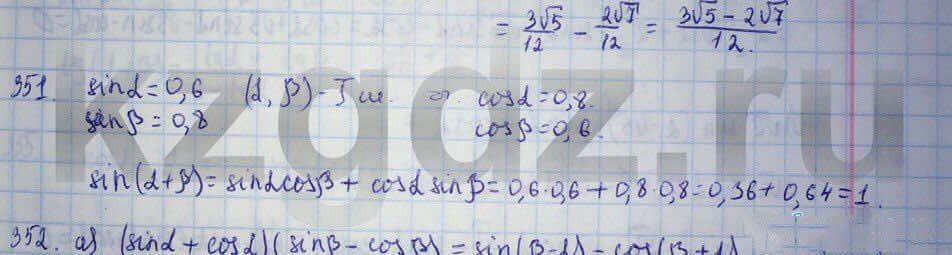 = 3√5/12 - 2√7/12 = (3√5 - 2√7)/12.
351. sinα = 0,6 (α, β) - I ш. ⇒ cosα = 0,8.
sinβ = 0,8 cosβ = 0,6.
sin(α+β) = sinαcosβ + cosα sinβ = 0,6·0,6 + 0,8·0,8 = 0,36 + 0,64 = 1.
352. а) (sinα + cosα)(sinβ - cosβ) = sin(β-α) - cos(β+α)
kzgdz.ru